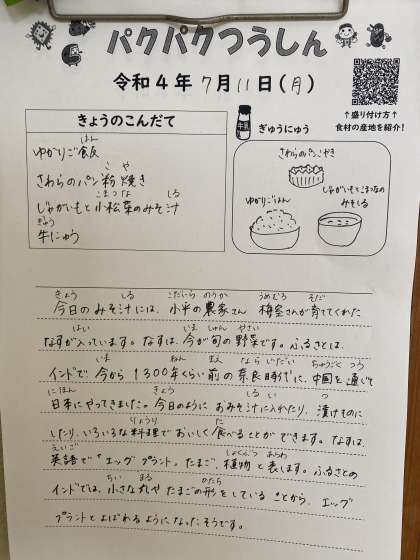 パクパクつうしん
令和4年 7月 11日(月)
↑盛り付け方↑
食材の産地を紹介!
きょうのこんだて
ゆかりご飯
さわらのパン粉焼き
じゃがいもと小松菜のみそ汁
牛にゅう
ぎゅうにゅう
さわらのパンこやき
ゆかりごはん
じゃがいもとこまつなの
みそしる
今日のみそ汁には、小平の農家さん 梅室さんが育てくれた
なすが入っています。なすは、今が旬の野菜です。ふるさとは、
インドで 今から1300年くらい前の奈良時代に、中国を通じて
日本にやってきました。今日のように おみそ汁に入れたり、漬けものに
したり、いろいろな料理でおいしく食べることができます。なすは、
英語で「エッグ プラント」。たまご、植物と表します。ふるさとの
インドでは、小さな丸や たまごの形をしていることから、エッグ
プラントとよばれるようになったそうです。